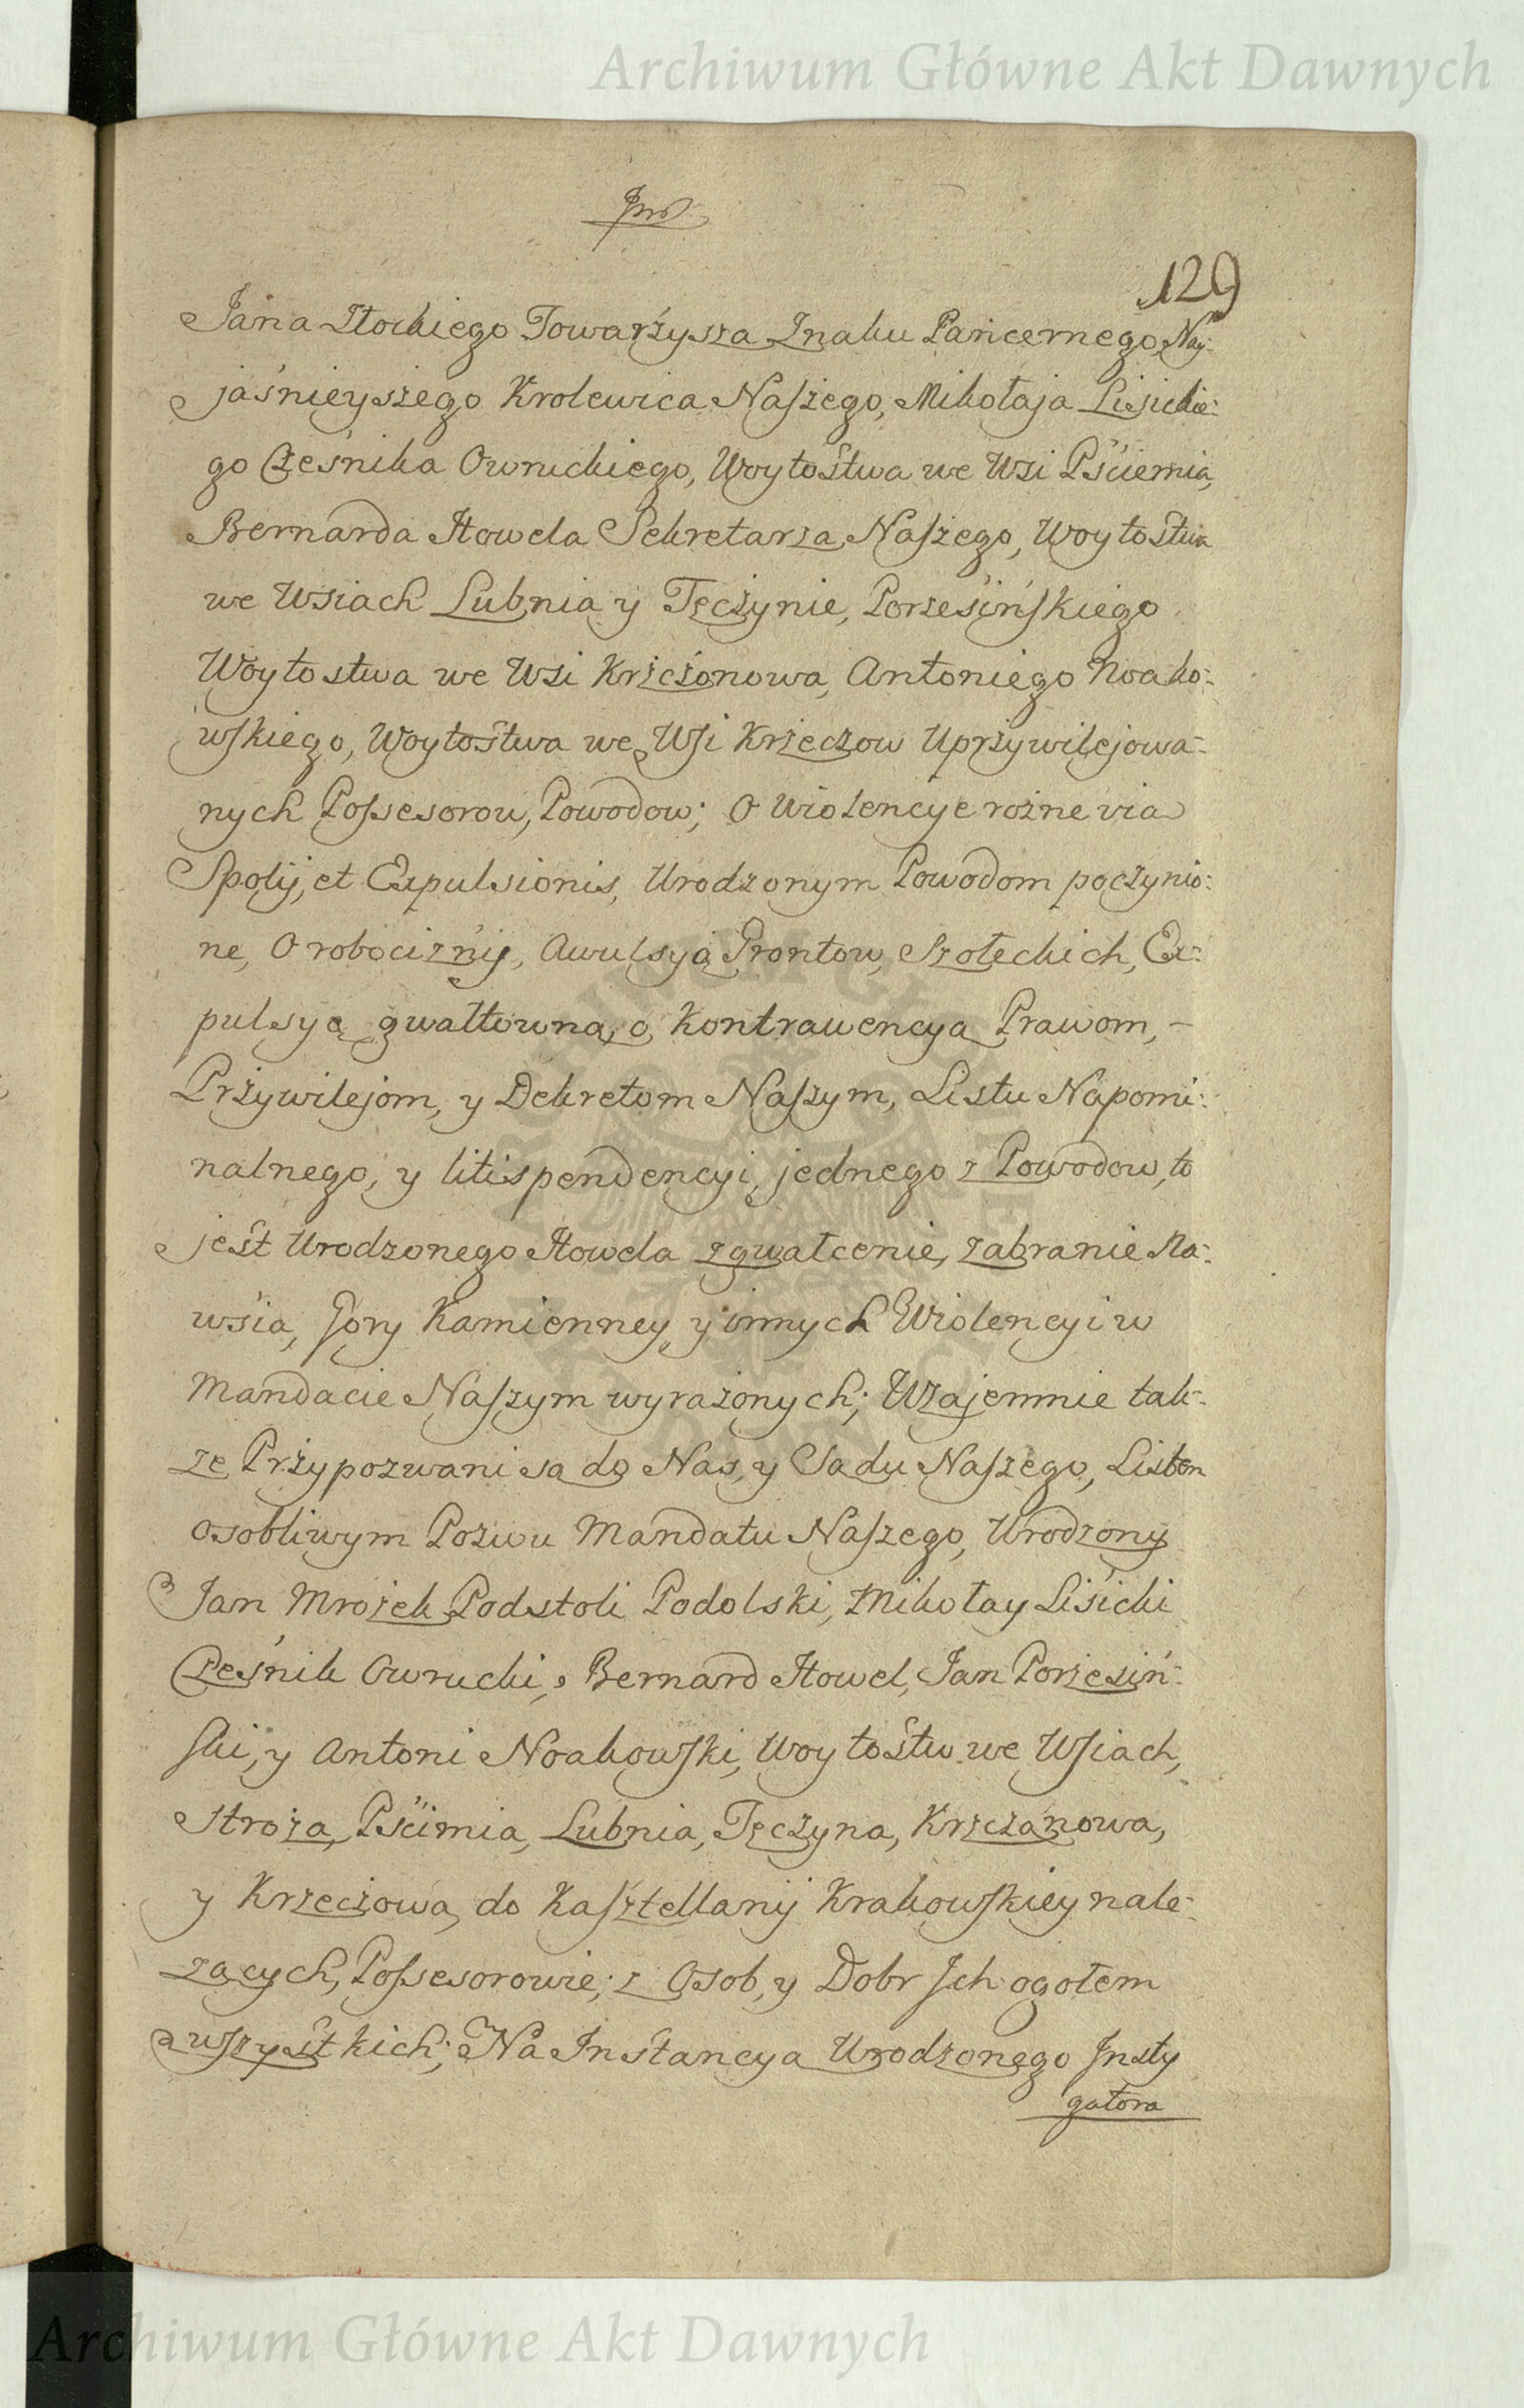 Archiwum Główne Akt Dawnych
129
Jana Stockiego Towarzysza Znaku Pancernego Nay-
jaśnieyszego Krolewica Naszego, Mikołaja Lisickie-
go Cześnika Owruckiego, Woytostwa we Wsi Pściemia,
Bernarda Howela Sekretarza Naszego, Woytostwa
we Wsiach Lubnia y Tęczynie, Porzesińskiego
Woytostwa we Wsi Krzczonowa, Antoniego Noako-
wskiego, Woytostwa we Wsi Krzeczow Uprzywilejowa-
nych Possesorow, Powodow; O Wiolencye rożne via
Spolij, et Expulsionis, Urodzonym Powodom poczynio-
ne, O robociznij, Awulsyą Grontow, Szołeckich, Ex-
pulsyą gwałtowną, o Kontrawencya Prawom, -
Przywilejom, y Dekretom Naszym, Listu Napomi-
nalnego, y litispendencyi, jednego z Powodow, to
jest Urodzonego Howela zgwałcenie, zabranie Na-
wsia, Gory Kamienney y innych Wiolencyi w
Mandacie Naszym wyrażonych; Wzajemnie tak-
ze Przypozwani są do Nas, y Sadu Naszego, Listem
osobliwym Pozwu Mandatu Naszego, Urodzony
Jan Mrozek Podstoli Podolski, Mikołay Lisicki
Cześnik Owrucki, Bernard Howel, Jan Porzesiń-
ski, y Antoni Noakowski, Woytostw we Wsiach,
Stroza, Pścimia, Lubnia, Tęczyna, Krzczanowa,
y Krzeczowa, do Kasztellanij Krakowskiey nale-
zących, Possesorowie; z Osob, y Dobr Ich ogołem
wszystkich; Na Instancya Urodzonego Insty
gatora
Archiwum Główne Akt Dawnych